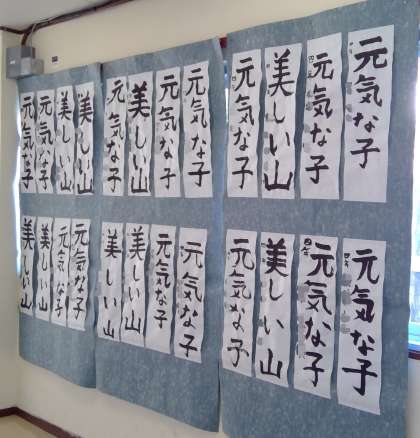 元気な子
元気な子
美しい山
元気な子
元気な子
元気な子
美しい山
元気な子
美しい山
美しい山
元気な子
元気な子
元気な子
元気な子
美しい山
元気な子
元気な子
元気な子
美しい山
美しい山
元気な子
元気な子
美しい山
美しい山